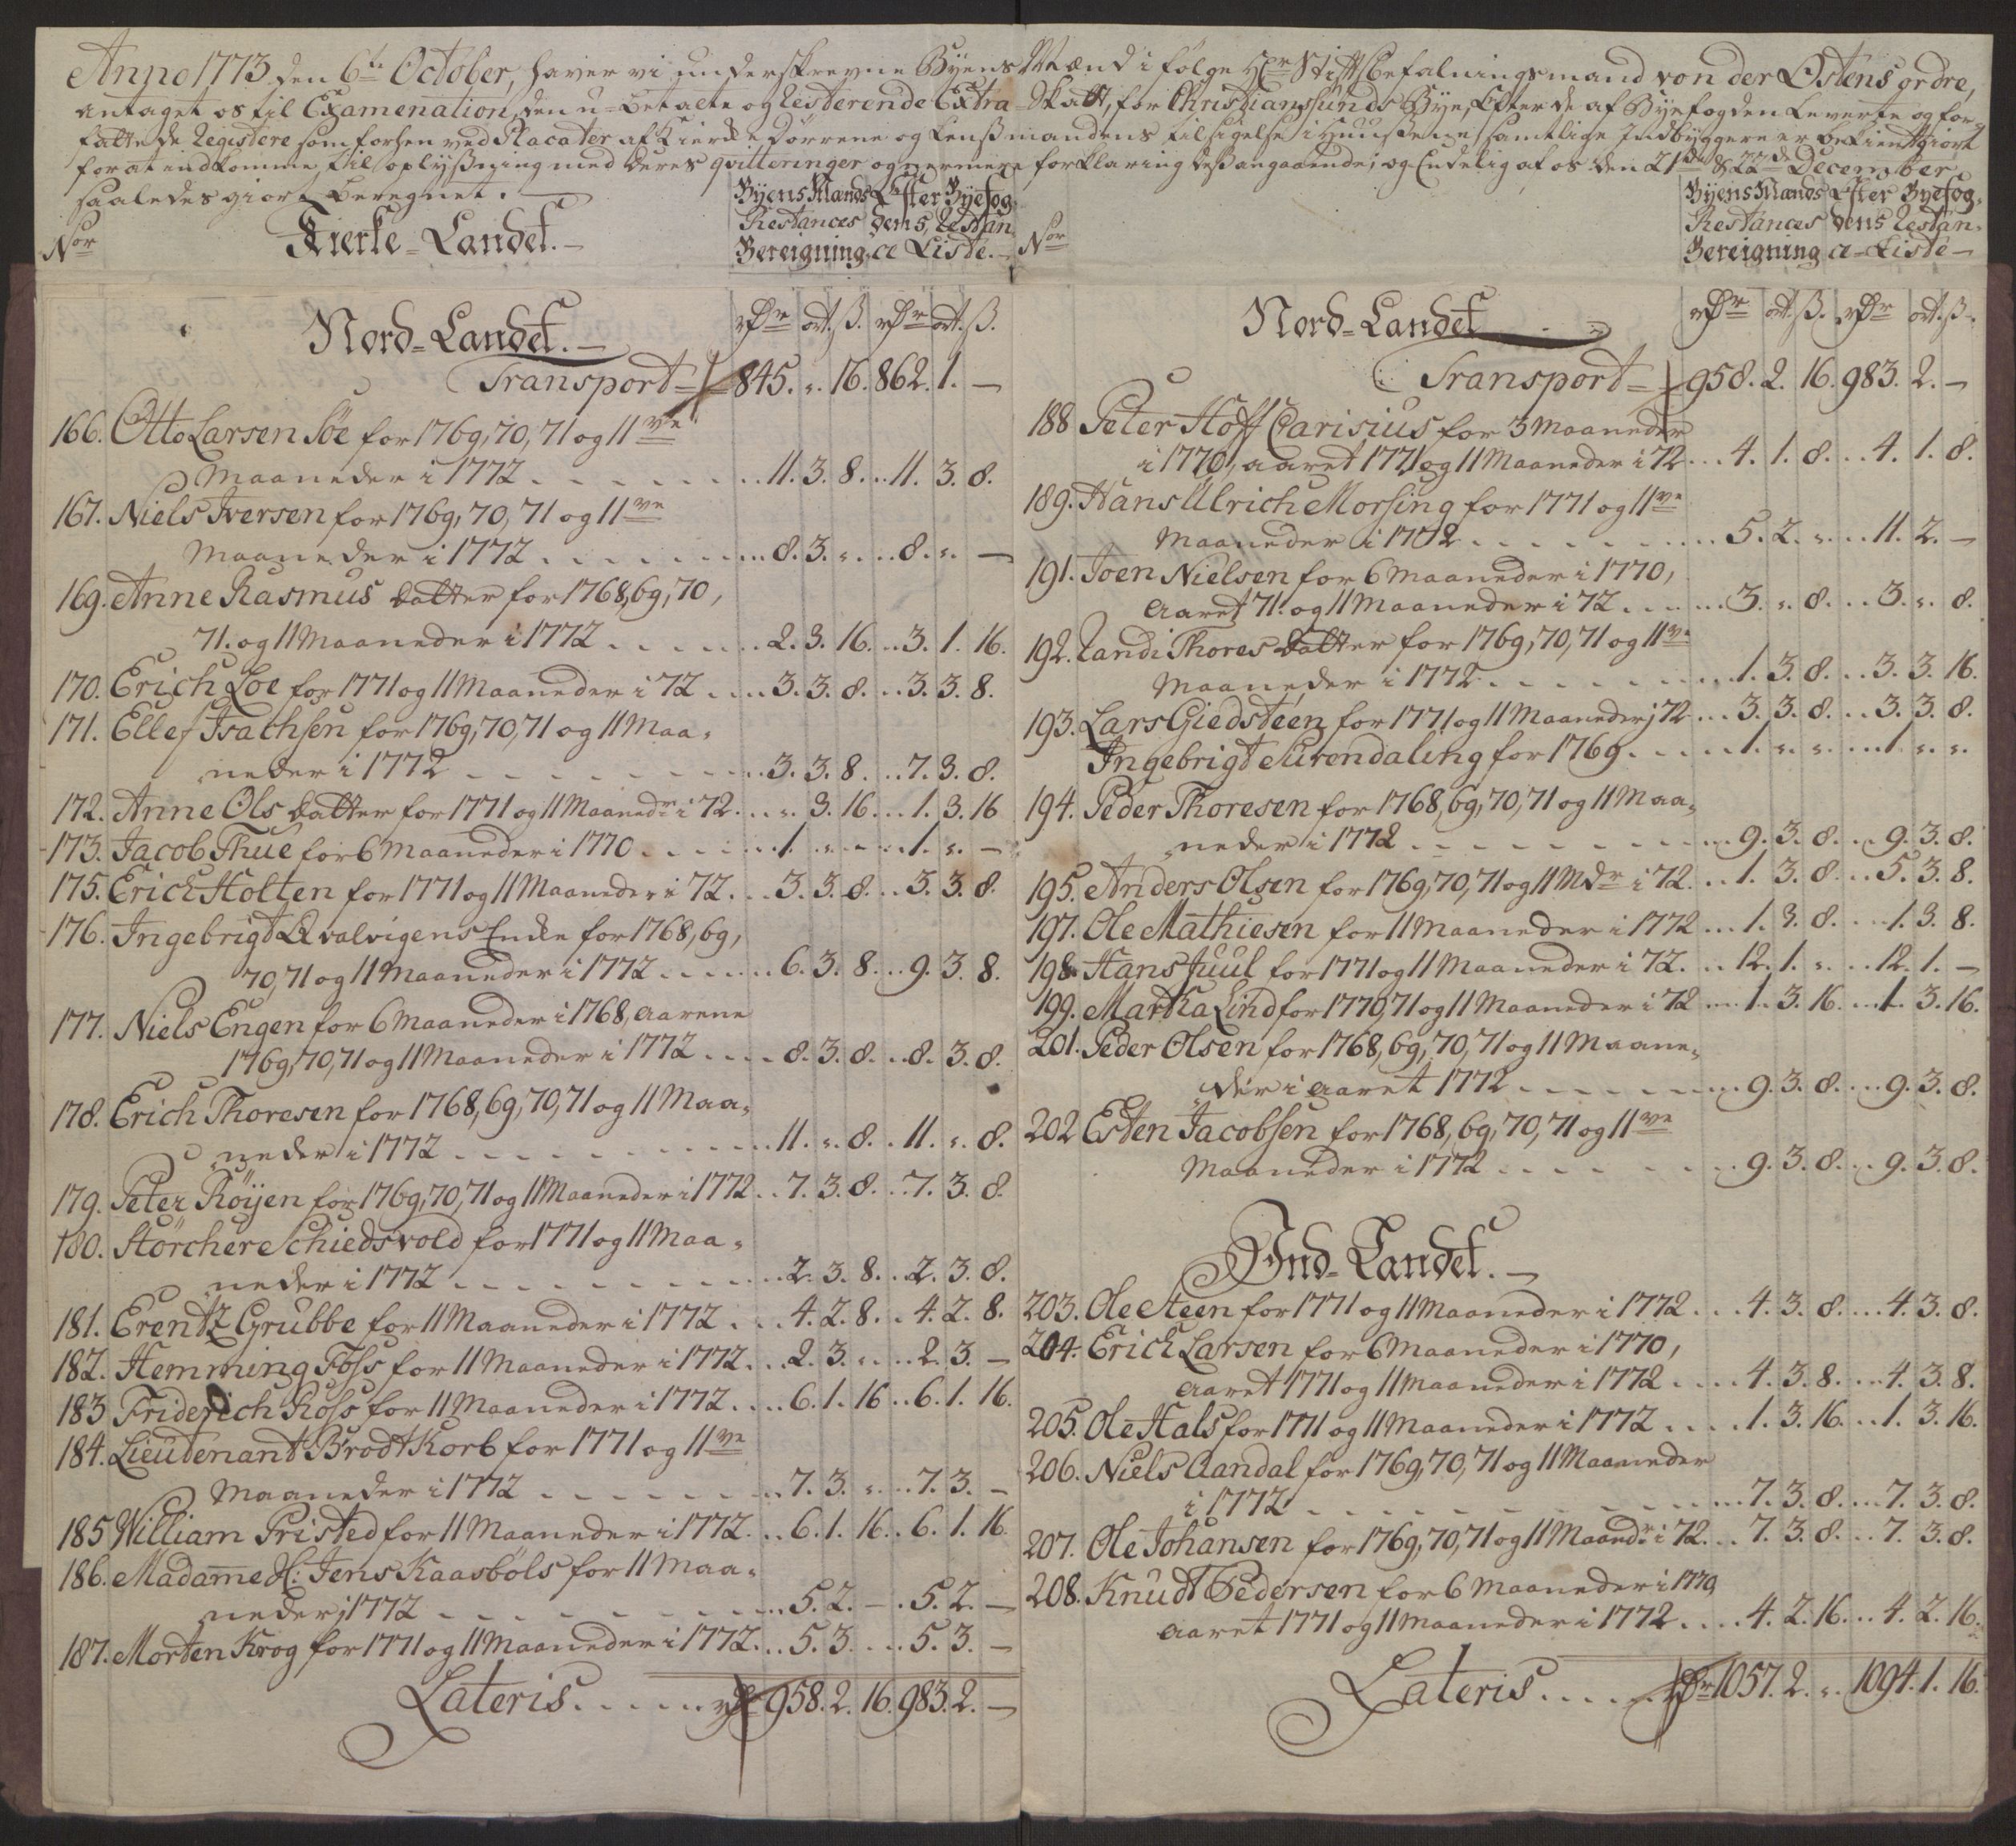 Anno 1773 den 6te October, haver vi underskrevne Byens Mænd i følge Hr Stiftsbefalningsmand von der Østens ordre,
antaget os til Examenation, den u-betalte og Resterende Extra-Skatt, for Christiansunds Bye, Efter de af Byefogden Leverte og for-
fattede Registere som forhen ved Placater af Kierke Dørrene og Lensmandens tilsigelse i Huusene samtlige Indbyggere er bekientgiort
for at indkomme til oplysning med deres qvitteringer og nermere forklaring des angaaende; og Endelig af os den 21de & 22de December
saaledes giort Beregnet.
Nor
Kierke-Landet.
Byens Mænds Restances Bereigning.
Efter Byefogdens Restance Liste.
Nor
Byens Mænds Restances Bereigning
Efter Byefogdens Restance-Liste
Nord-Landet.
rdr ort. ß. rdr ort. ß.
Transport 845. „ 16. 862. 1. —
166. Otto Larsen Söe for 1769, 70, 71 og 11ve
Maaneder i 1772 11. 3. 8. 11. 3. 8.
167. Niels Iversen for 1769, 70, 71 og 11ve
Maaneder i 1772 8. 3. „ 8. „ —
169. Anne Rasmus datter for 1768, 69, 70,
71. og 11 Maaneder i 1772 2. 3. 16. 3. 1. 16.
170. Erich Löe for 1771 og 11 Maaneder i 72 3. 3. 8. 3. 3. 8.
171. Ellef Isachsen for 1769, 70, 71 og 11 Maa-
neder i 1772 3. 3. 8. 7. 3. 8.
172. Anne Ols datter for 1771 og 11 Maanedr i 72. „ 3. 16. 1. 3. 16
173. Jacob Thue for 6 Maaneder i 1770 1. „ - 1. „ —
175. Erich Holten for 1771 og 11 Maaneder i 72. 3. 3. 8. 3. 3. 8.
176. Ingebrigt Qvalvigens Enke for 1768, 69,
70, 71 og 11 Maaneder i 1772 6. 3. 8. 9. 3. 8.
177. Niels Engen for 6 Maaneder i 1768, Aarene
1769, 70, 71 og 11 Maaneder i 1772 8. 3. 8. 8. 3. 8.
178. Erich Thoresen for 1768, 69, 70, 71 og 11 Maa-
neder i 1772 11. „ 8. 11. „ 8.
179. Peter Röyen for 1769, 70, 71 og 11 Maaneder i 1772 7. 3. 8. 7. 3. 8.
180. Störcher Schiedsvold for 1771 og 11 Maa-
neder i 1772 2. 3. 8. 2. 3. 8.
181. Erentz Grubbe for 11 Maaneder i 1772 4. 2. 8. 4. 2. 8.
182. Hemming Foss for 11 Maaneder i 1772 2. 3. „ 2. 3. —
183 Friderich Ross for 11 Maaneder i 1772 6. 1. 16 6. 1. 16.
184. Lieutenant Brodtkorb for 1771 og 11ve
Maaneder i 1772 7. 3. „ 7. 3. -
185 William Pristed for 11 Maaneder i 1772. 6. 1. 16. 6. 1. 16.
186. Madame H: Jens Kaasböls for 11 Maa-
neder i 1772 5. 2. — 5. 2. —
187. Morten Krog for 1771 og 11 Maaneder i 1772. 5. 3. 5. 3. —
Lateris rdr 958. 2. 16. 983. 2. —
Nord-Landet
rdr ort. ß. rdr ort. ß.
Transport 958. 2. 16. 983. 2. —
188 Peter Hoff Parisius for 3 Maaneder
i 1770, aaret 1771 og 11 Maaneder i 72 4. 1. 8. 4. 1. 8.
189. Hans Ulrich Morsing for 1771 og 11ve
Maaneder i 1772 5. 2. „ 11. 2. —
191. Joen Nielsen for 6 Maaneder i 1770,
Aaret 71. og 11 Maaneder i 72 3. „ 8. 3. „ 8.
192. Randi Thores datter for 1769, 70, 71 og 11ve
Maaneder i 1772 1. 3. 8. 3. 3. 16.
193. Lars Giedsteen for 1771 og 11 Maaneder i 72 3. 3. 8. 3. 3. 8.
Ingebrigt Surendaling for 1769 1. „ „ 1. „ „
194. Peder Thoresen for 1768, 69, 70, 71 og 11 Maa-
neder i 1772 9. 3. 8. 9. 3. 8.
195. Anders Olsen for 1769, 70, 71 og 11 Mdr i 72. 1. 3. 8. 5. 3. 8.
197. Ole Mathiesen for 11 Maaneder i 1772 1. 3. 8. 1. 3. 8.
198. Hans Juul for 1771 og 11 Maaneder i 72. 12. 1. „ 12. 1. —
199. Martha Lind for 1770, 71 og 11 Maaneder i 72 1. 3. 16. 1. 3. 16.
201. Peder Olsen for 1768, 69, 70, 71 og 11 Maane-
der i Aaret 1772 9. 3. 8. 9. 3. 8.
202 Esten Jacobsen for 1768, 69, 70, 71 og 11ve
Maaneder i 1772 9. 3. 8. 9. 3. 8.
Ind-Landet.
203. Ole Steen for 1771 og 11 Maaneder i 1772 4. 3. 8. 4. 3. 8.
204. Erich Larsen for 6 Maaneder i 1770,
Aaret 1771 og 11 Maaneder i 1772 4. 3. 8. 4. 3. 8.
205. Ole Hals for 1771 og 11 Maaneder i 1772 1. 3. 16. 1. 3. 16.
206. Niels Aandal for 1769, 70, 71 og 11 Maaneder
i 1772 7. 3. 8. 7. 3. 8.
207. Ole Johansen for 1769, 70, 71 og 11 Maandr i 72. 7. 3. 8. 7. 3. 8.
208. Knudt Pedersen for 6 Maaneder i 1770,
Aaret 1771 og 11 Maaneder i 1772 4. 2. 16. 4. 2. 16.
Lateris rdr 1057. 2. „ 1094. 1. 16.